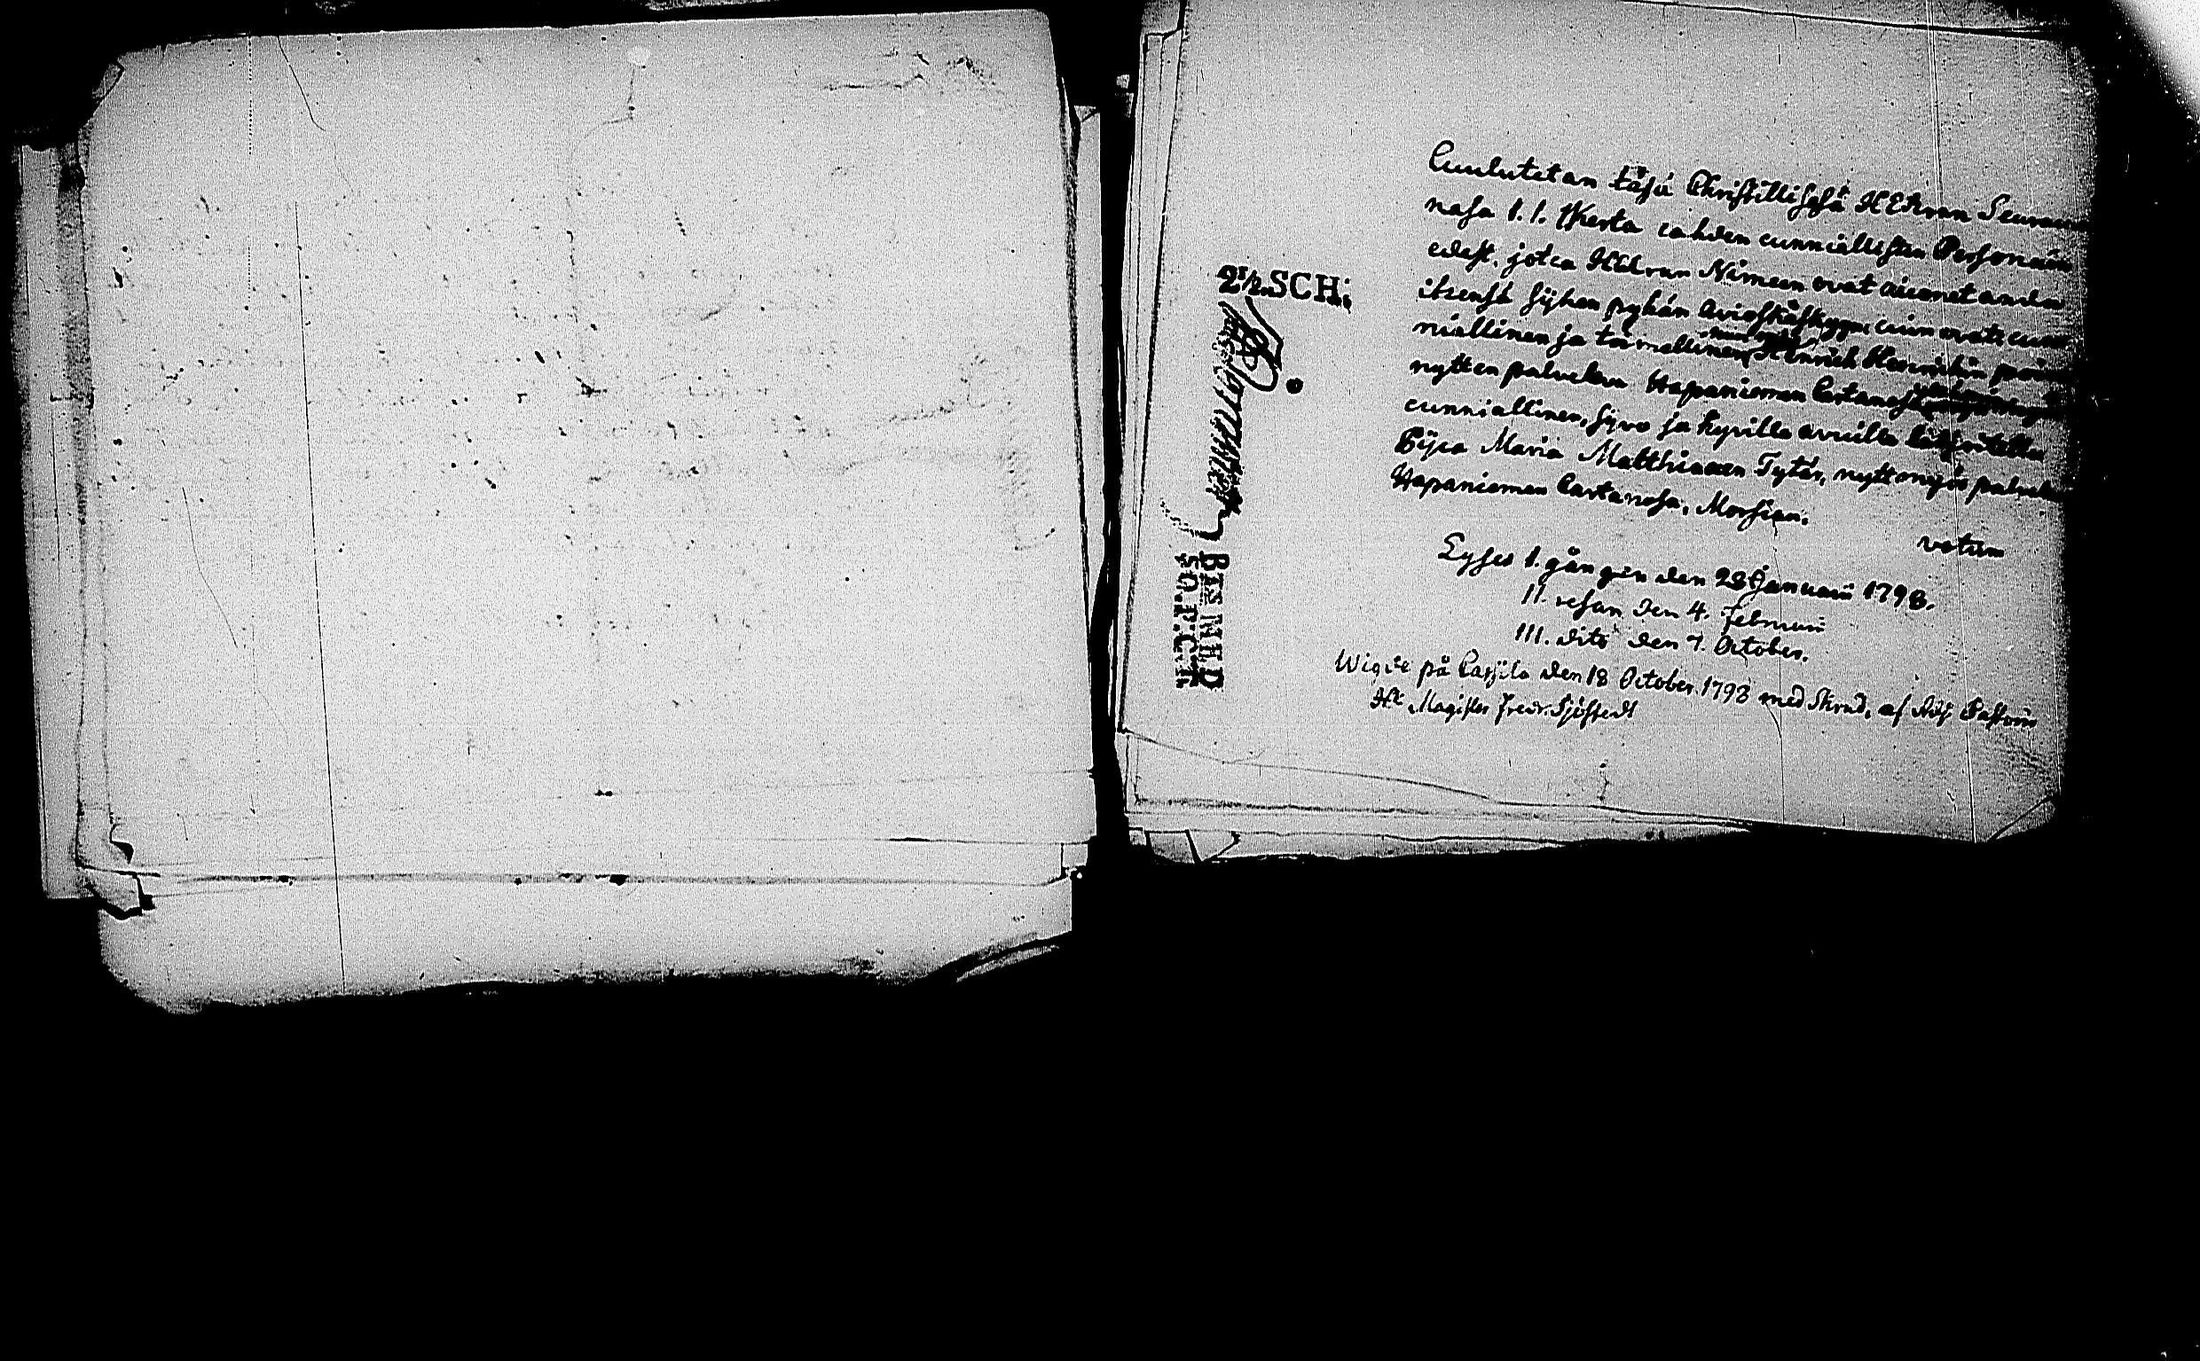 Cuulutetan täsä Christillisesä HERran Seuracun
nasa 1. 1. Kerta cahden cunniallisen Personain
edest, jotca HERran Nimeen ovat aiconet anda
itzensä sijhen pyhän Aviokäskyyn, cuin ovat: cun
niallinen ja toimellinen Henrich Henrichin poica
nytten palvelew Hapaniemen Cartanosa
cunniallinen, sivo ja hyvillä avuilla lahjoitettu
Pijca Maria Matthiaxen Tytär, nytt myös palvele
Hapaniemen Cartanosa, Morsian.
votum
Lyses 1. gången den 28 Januarii 1798.
II. resan den 4. Februarii
III. dito den 7. October.
Wigde på Carsila den 18 October 1798 med Skrud, af
H. Magister Fredr. Sjöstedt
2½ SCH: